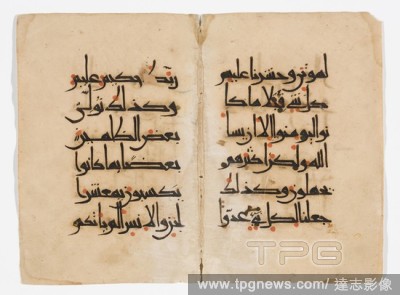 لموتى وحشرنا عليهم
كل شى قبلا ما كا
نوا ليومنوا الا ان يشا
الله ولكن اكثرهم
يجهلون وكذلك
جعلنا لكل نبى عدوا
ربك حكيم عليم
وكذلك نولى
بعض الظلمين
بعضا بما كانوا
يكسبون يمعشر ا
لجن والانس الم ياتكم
TPG
www.tpgnews.com / 達志影像